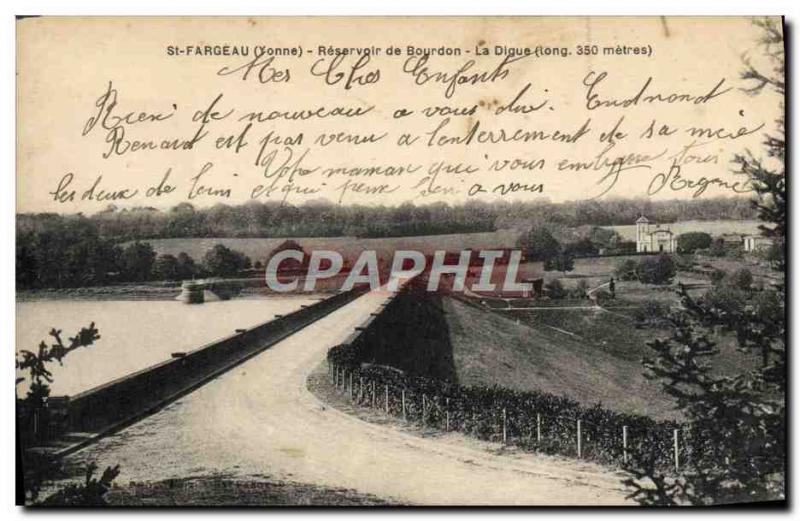 St-FARGEAU (Yonne) - Réservoir de Bourdon - La Digue (long. 350 mètres)
Mes Chers Enfants
Rien de nouveau a vous dire. Edmond
Renard est pas venu a l'enterrement de sa mère
Votre maman qui vous embrasse tous
les deux de loin et qui pense bien a vous
CPARAPHIL